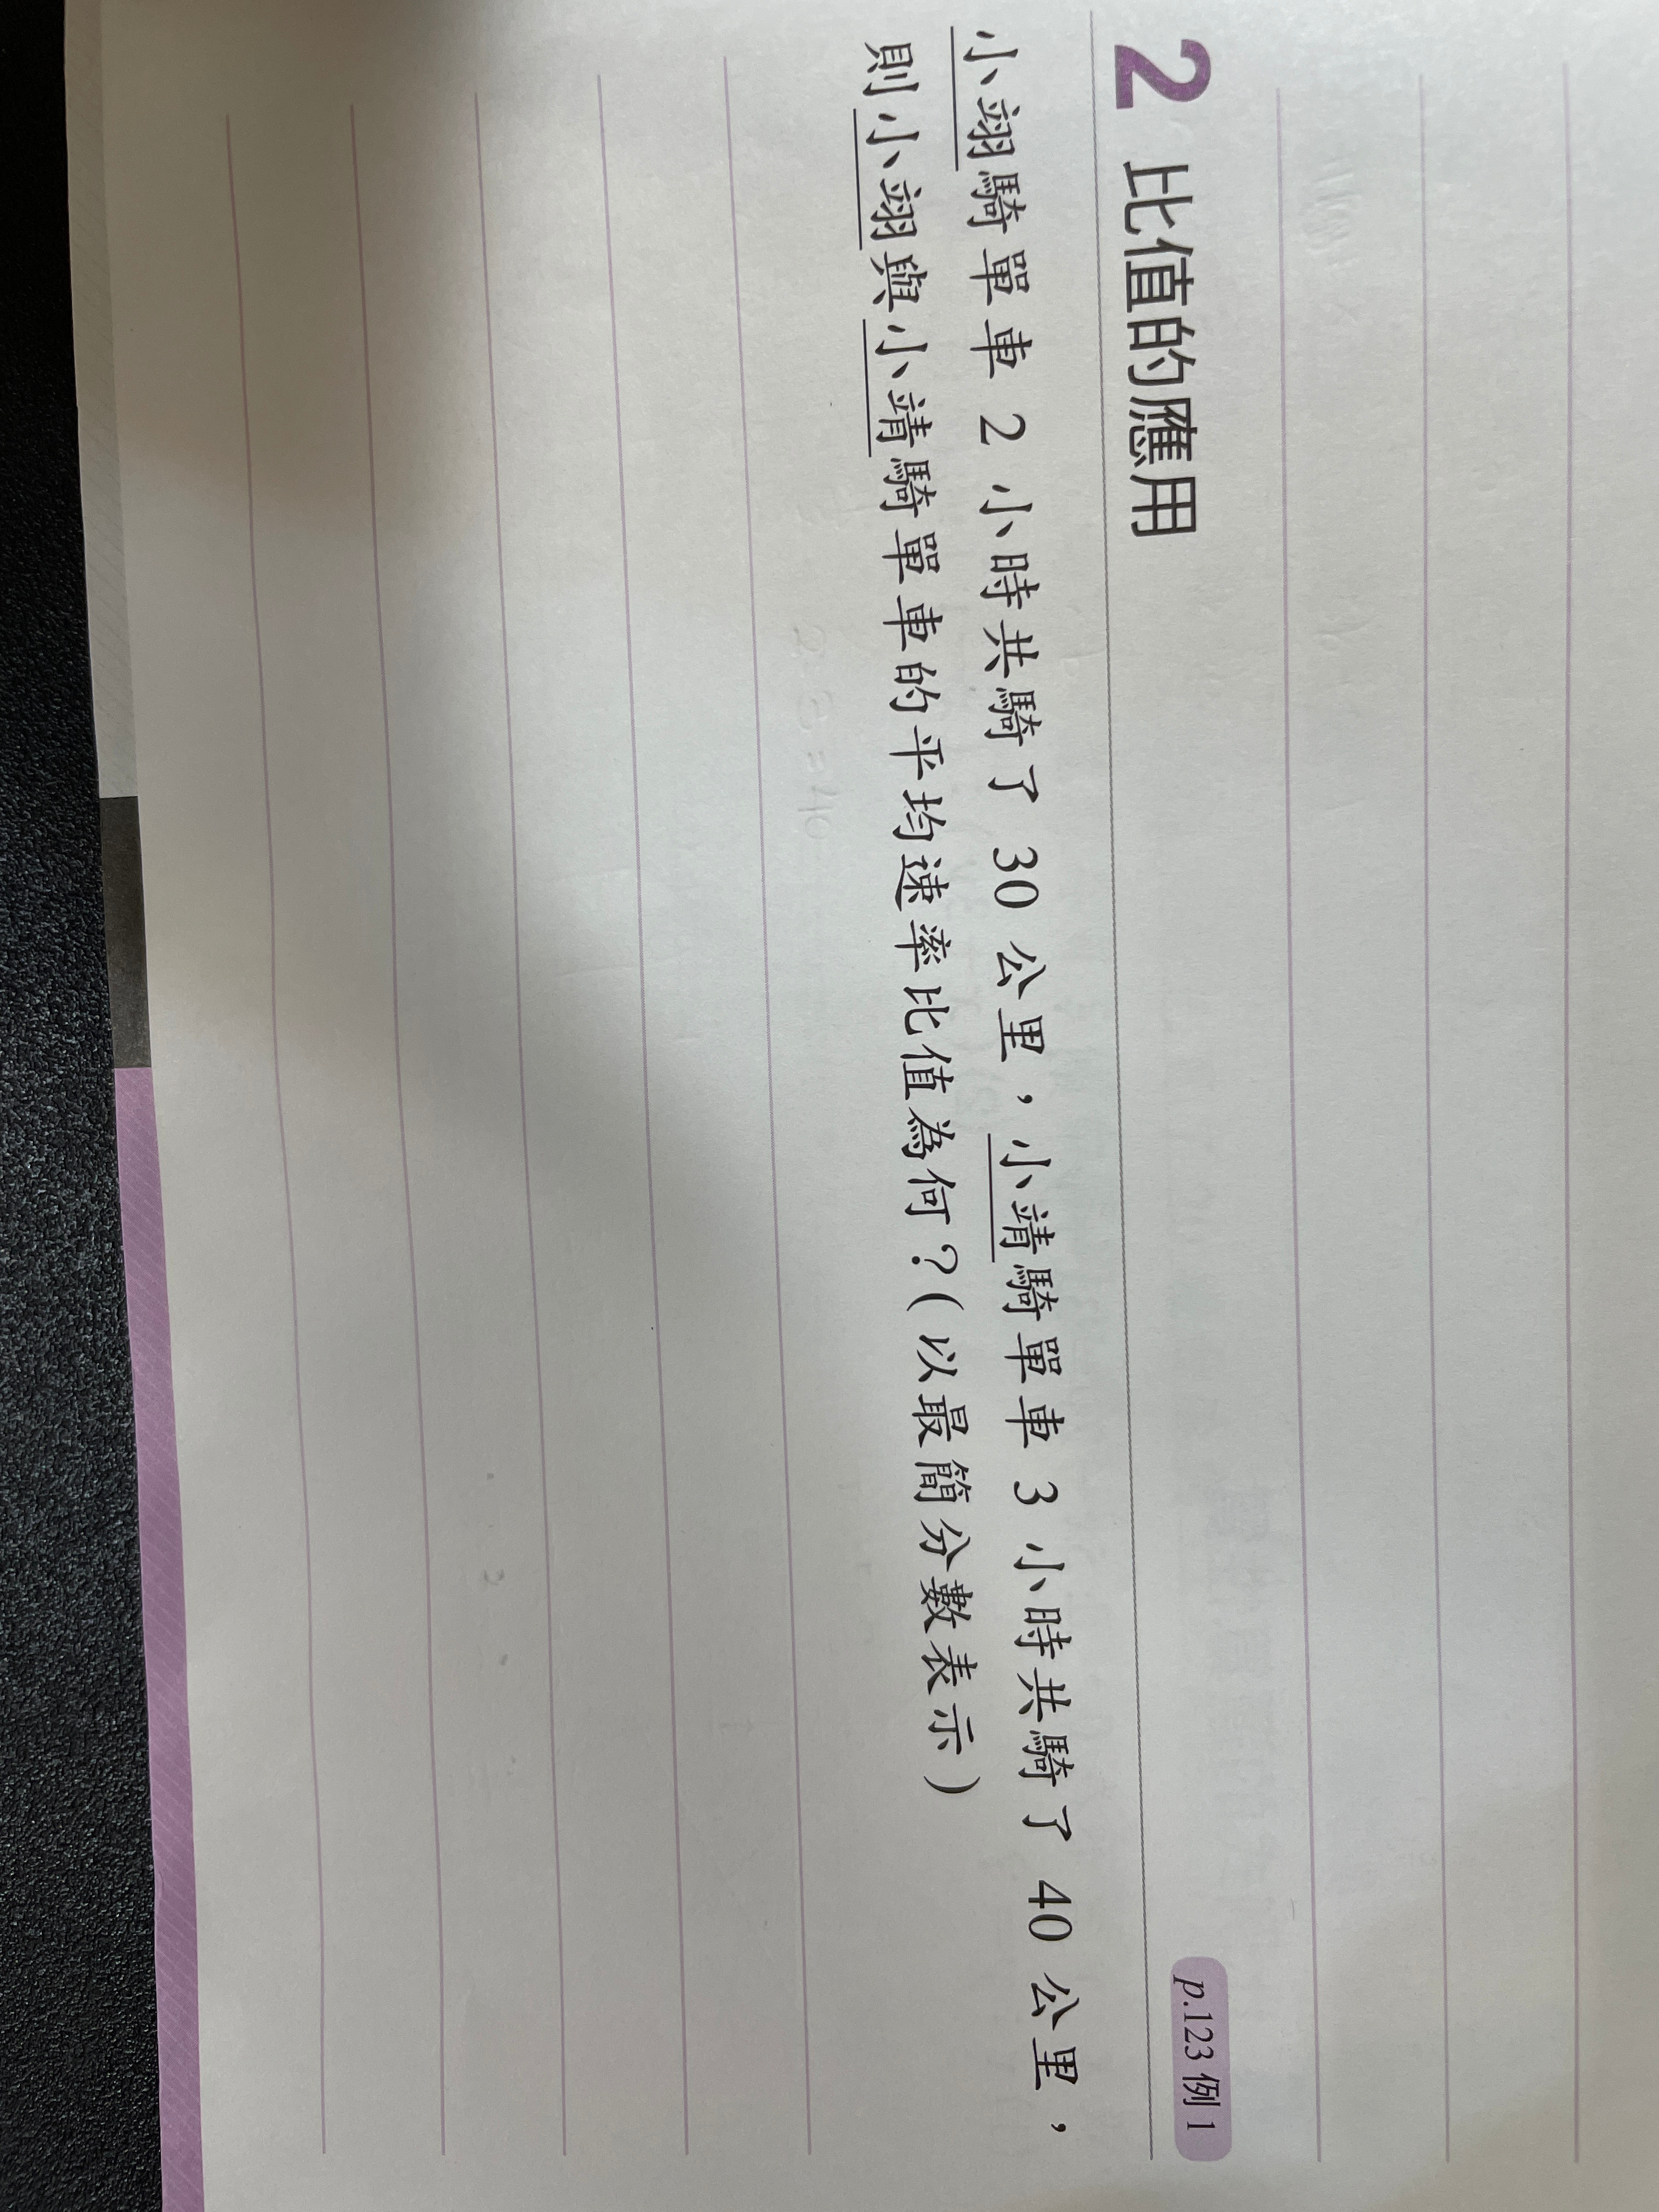 2 比值的應用
p.123 例 1
小翊騎單車 2 小時共騎了 30 公里，小靖騎單車 3 小時共騎了 40 公里，
則小翊與小靖騎單車的平均速率比值為何？(以最簡分數表示)